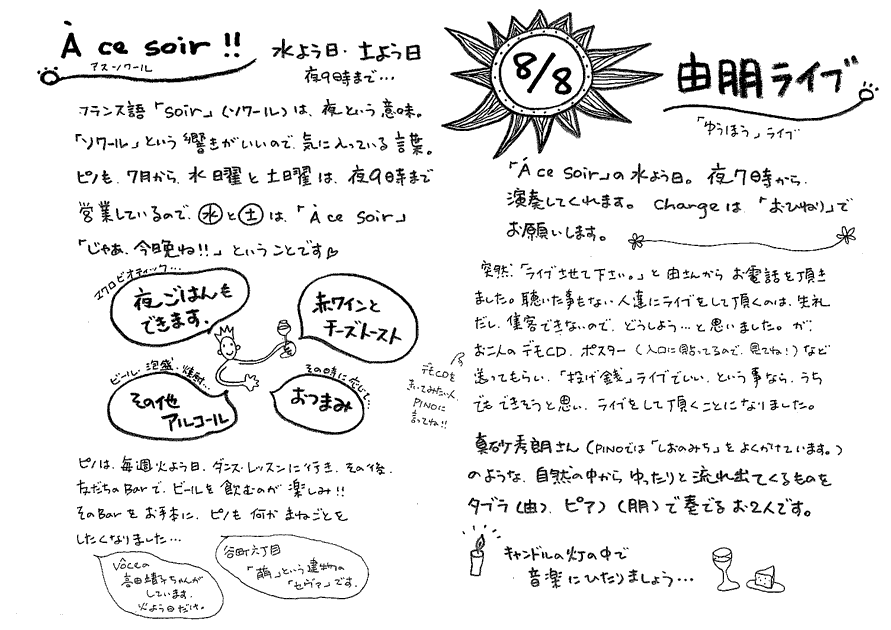 À ce soir !!
アスソワール
水よう日・土よう日
夜9時まで…
フランス語「Soir」(ソワール)は、夜という意味。
「ソワール」という響きがいいので、気に入っている言葉。
ピノも、7月から、水曜日と土曜日は、夜9時まで
営業しているので、水と土は、「À ce soir」
「じゃあ、今晩ね!!」ということです♡
マクロビオティック…
夜ごはんも
できます.
赤ワインと
チーズトースト
ビール・泡盛・焼酎…
その他
アルコール
その時に応じて…
おつまみ
ピノは、毎週火よう日、ダンス・レッスンに行き、その後、
友だちのBarで、ビールを飲むのが楽しみ!!
そのBarをお手本に、ピノも何かまねごとを
したくなりました…
Vôceの
ちゃんが
しています.
火よう日だけ。
谷町六丁目
「萌」という建物の
「セヴァ」です。
8/8
由朋ライブ
「ゆうほう」ライブ
「À ce soir」の水よう日。夜7時から、
演奏してくれます。changeは、「おひねり」で
お願いします。
突然、「ライブさせて下さい。」と由さんからお電話を頂き
ました。聴いた事もない人達にライブをして頂くのは、失礼
だし、集客できないので、どうしよう…と思いました。が、
お二人のデモCD、ポスター(入口に貼ってるので、見てね!)など
送ってもらい、「投げ銭」ライブでいい、という事なら、うち
でもできそうと思い、ライブをして頂くことになりました。
デモCDを
きいてみたい人、
PINOに
言ってね!!
真砂秀朗さん(PINOでは「しおのみち」をよくかけています。)
のような、自然の中からゆったりと流れ出てくるものを
タブラ(由)、ピアノ(朋)で奏でるお2人です。
キャンドルの灯の中で
音楽にひたりましょう…